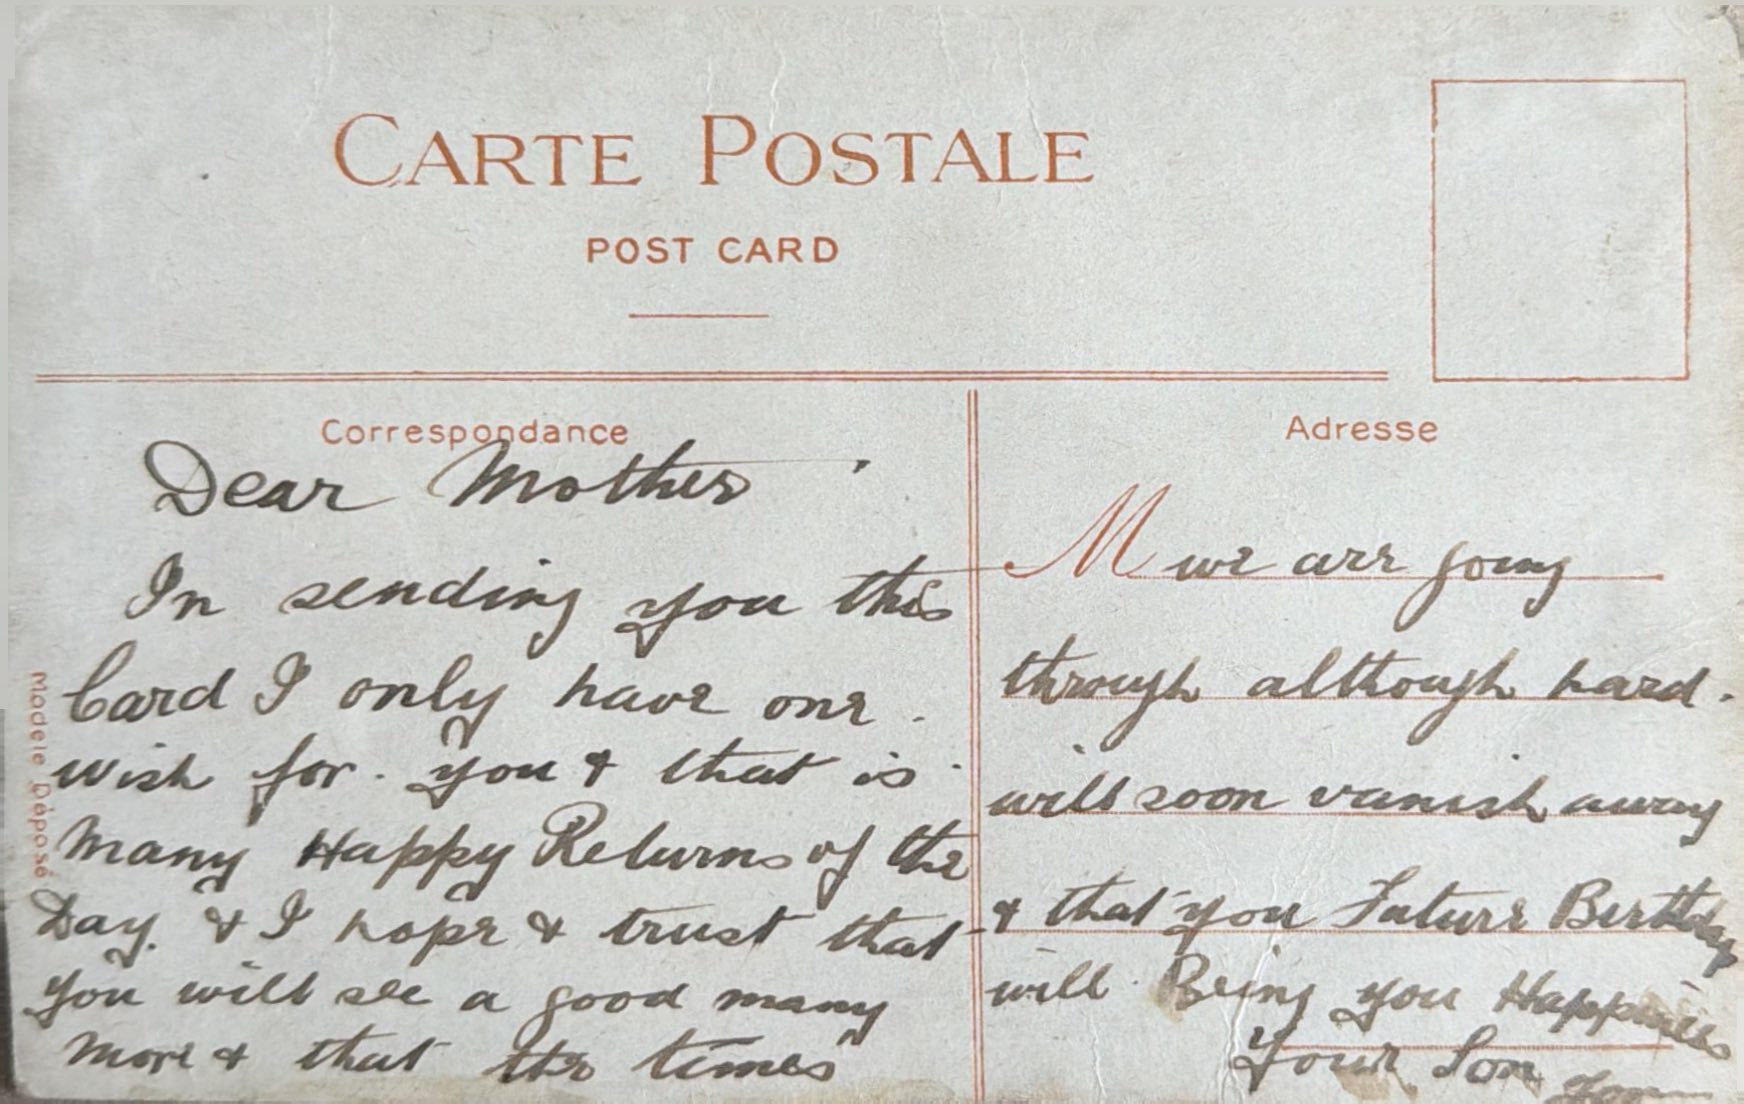 CARTE POSTALE
POST CARD
Correspondance
Dear Mother
In sending you this
Card I only have one.
wish for. you & that is
Many Happy Returns of the
Day. & I hope & trust that
you will see a good many
more & that the times
Modèle Déposé
Adresse
M we are going
through although hard.
will soon vanish away
& that you Future Birthday
will Bring you Happiness
Your Son